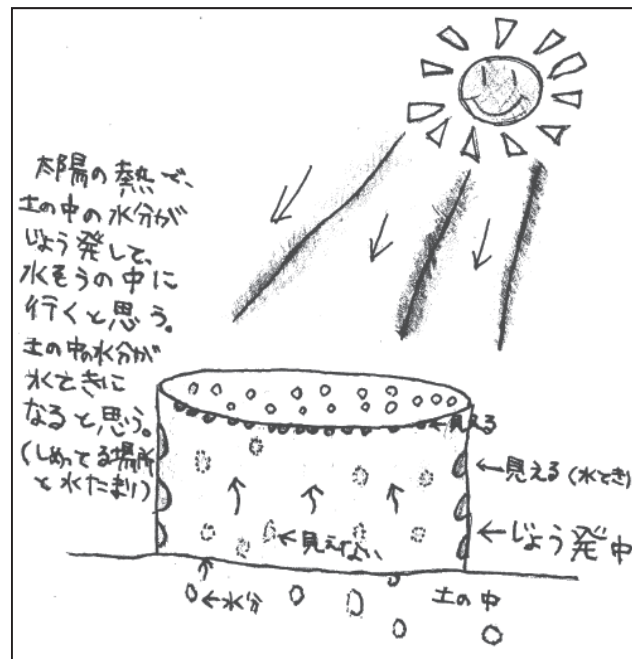 太陽の熱で、
土の中の水分が
じょう発して、
水そうの中に
行くと思う。
土の中の水分が
水てきに
なると思う。
(しめってる場所
と水たまり)
←見える
←見える(水てき)
←じょう発中
←見えない
←水分
土の中